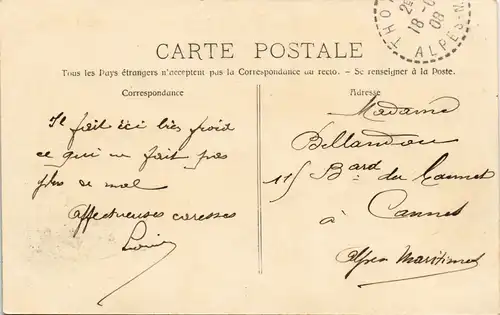 THO
18
08
ALPES-M
CARTE POSTALE
Tous les Pays étrangers n'acceptent pas la Correspondance au recto. - Se renseigner à la Poste.
Correspondance
Il fait ici très froid
ce qui ne fait pas
plus de mal
affectueuses caresses
Adresse
Madame
Bellandou
115 Bard du Cannet
à
Cannes
Alpes Maritimes